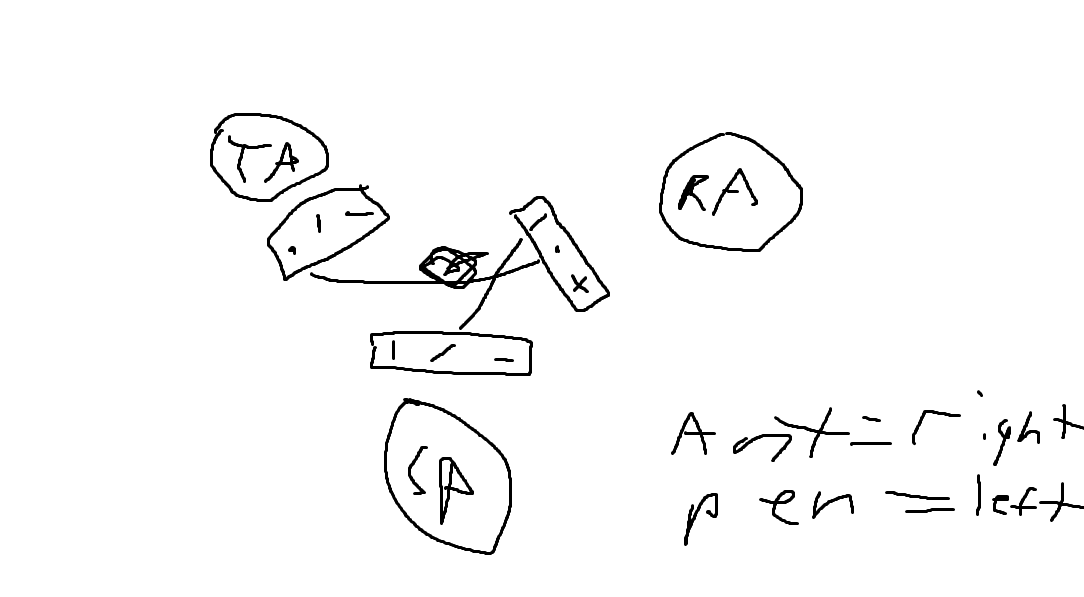 TA
RA
SA
= right
pen = left